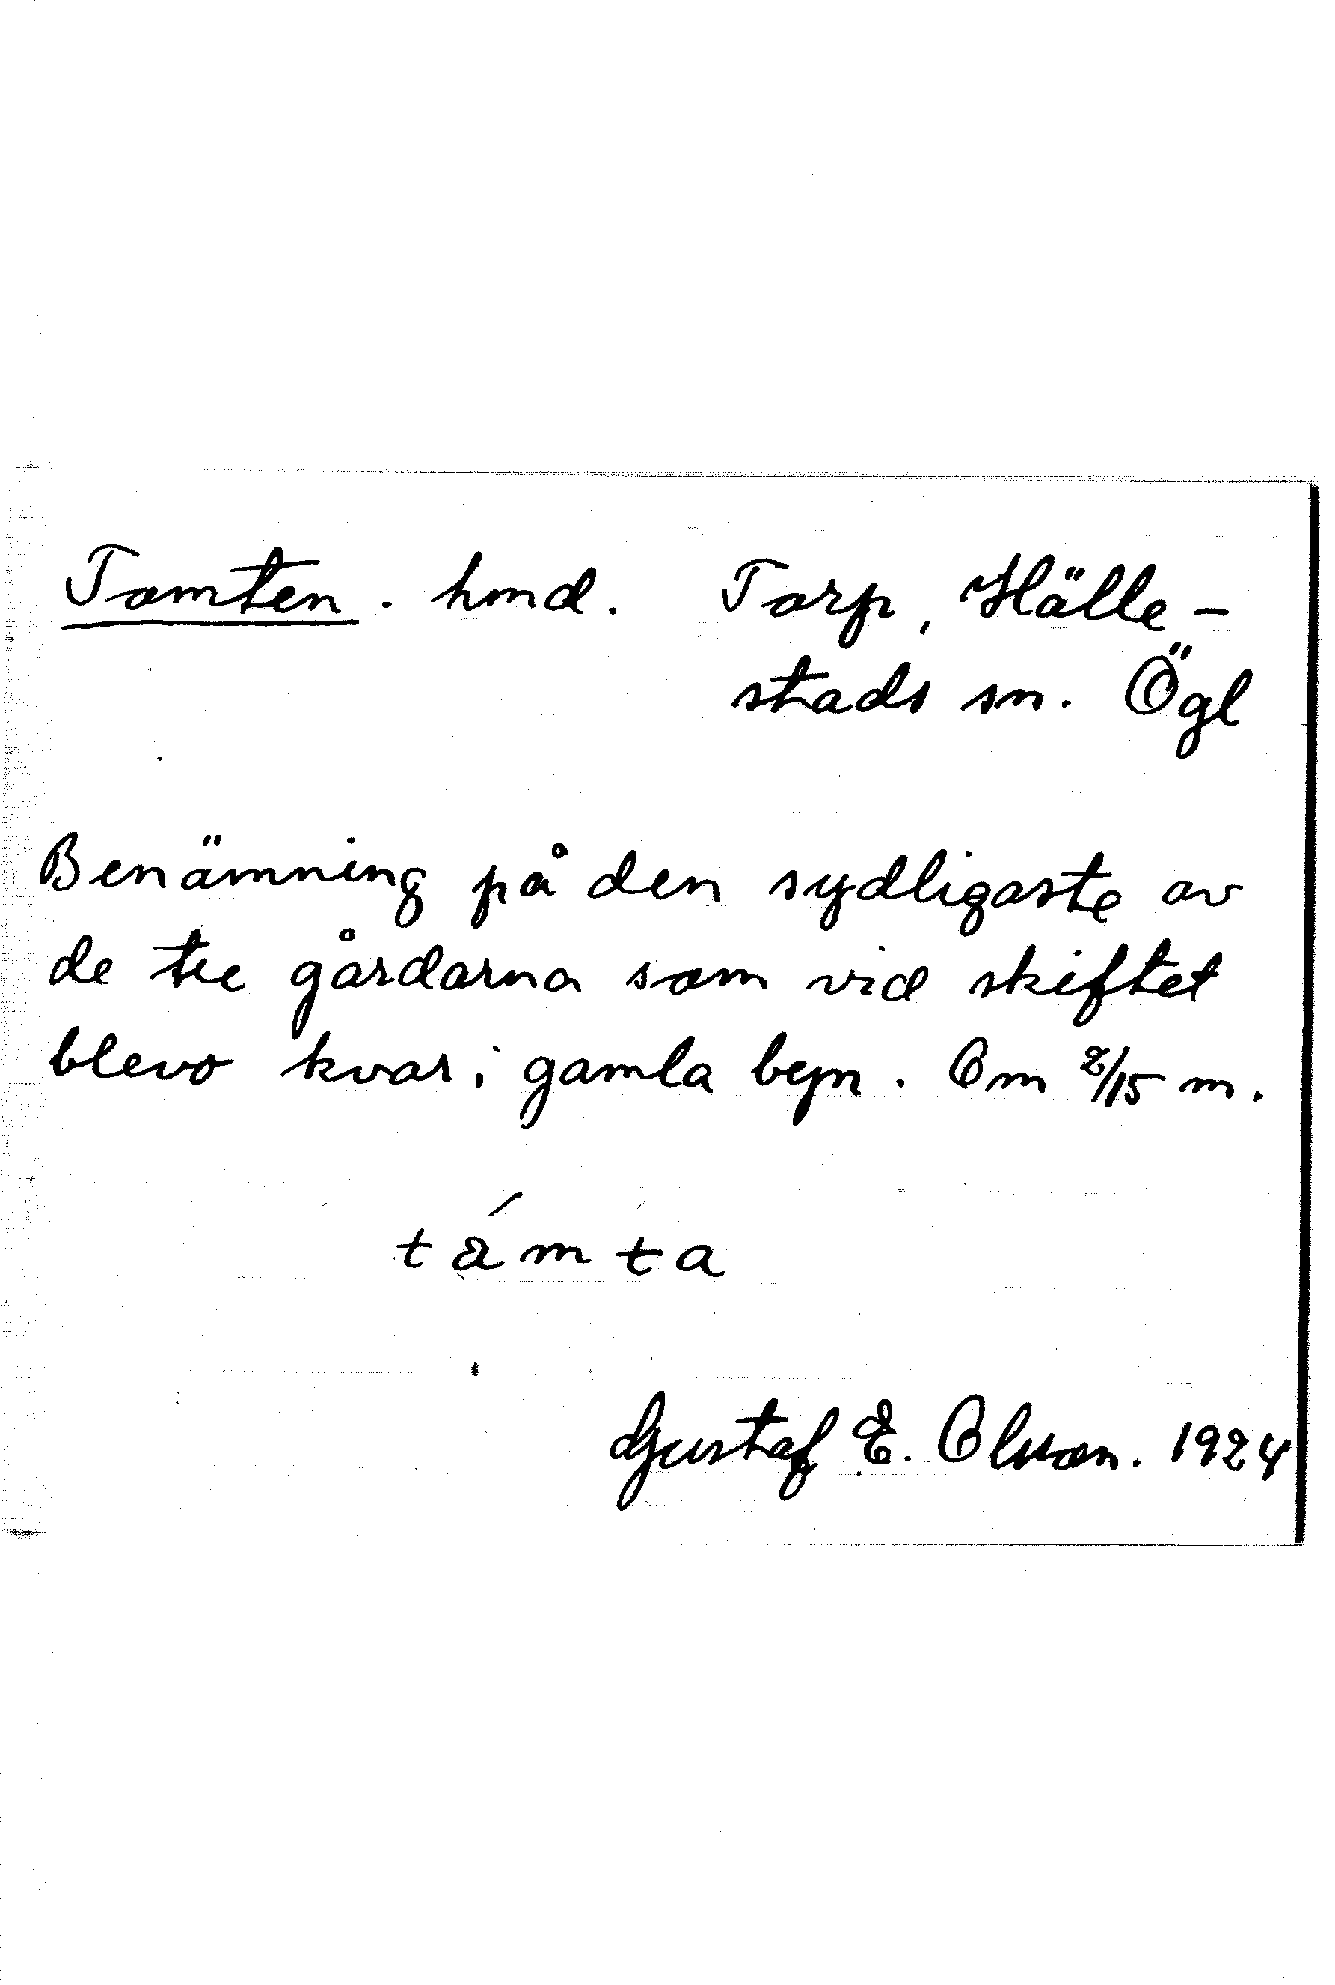 Tomten. hmd. Torp, Hälle-
stads sn. Ögl
Benämning på den sydligaste av
de tre gårdarna som vid skiftet
blevo kvar i gamla byn. Om 2/15 m.
támta
Gustaf E. Olsson. 1924